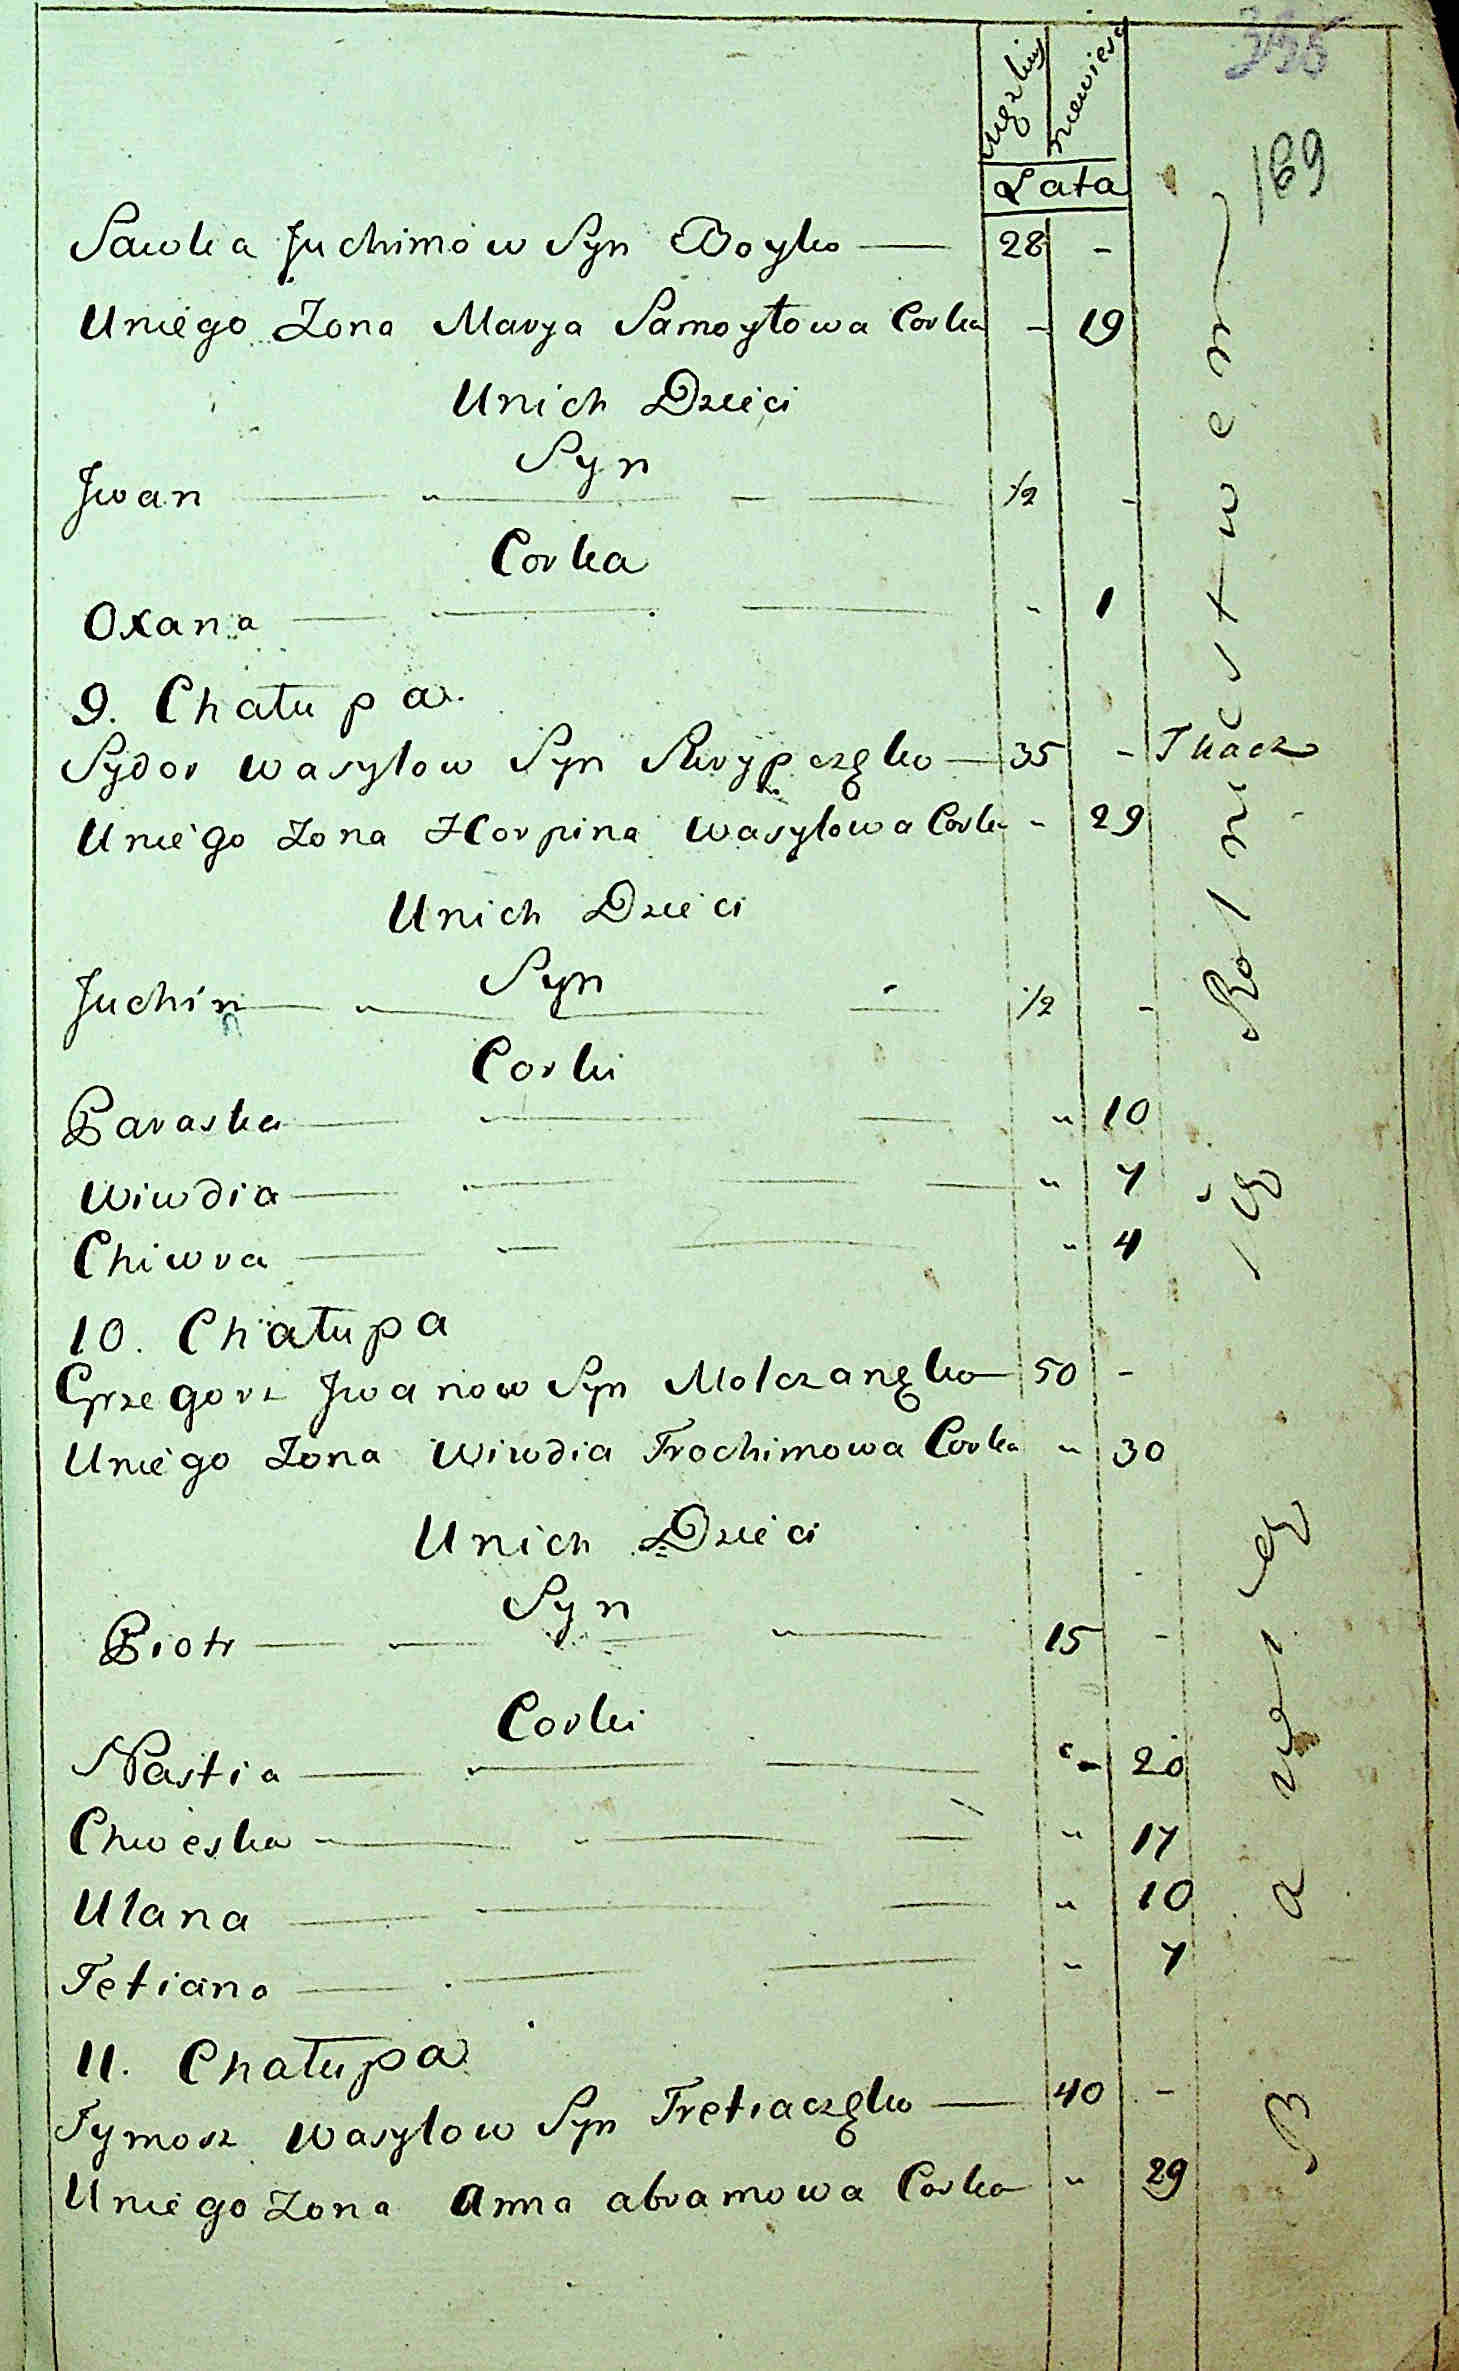 355
169
mężczyz niewiesc
Lata
Sawka Juchimów Syn Boyko — 28 -
Uniego Zona Marya Samoyłowa Corka - 19
Unich Dzieci
Syn
Jwan — " — — — ½ -
Corka
Oxana — — — " 1
9. Chałupa
Sydor Wasylow Syn Skrypczęko — 35 - Tkacz
Uniego Zona Horpina Wasylowa Corka - 29
Unich Dzieci
Syn
Juchin — " — — ½ -
Corki
Paraska — — — " 10
Wiwdia — — — — " 7
Chiwra — — — " 4
10. Chałupa
Grzegorz Jwanow Syn Molczanęko — 50 -
Uniego Zona Wiwdia Trochimowa Corka " 30
Unich Dzieci
Syn
Piotr — — — — 15 -
Corki
Nastia — — — " 20
Chweska — — — " 17
Ulana — — — " 10
Tetiana — — — " 7
11. Chałupa
Tymosz Wasylow Syn Tretiaczęko — 40 -
Uniego Zona Anna abramowa Corka " 29
Bawią się Rolnictwem